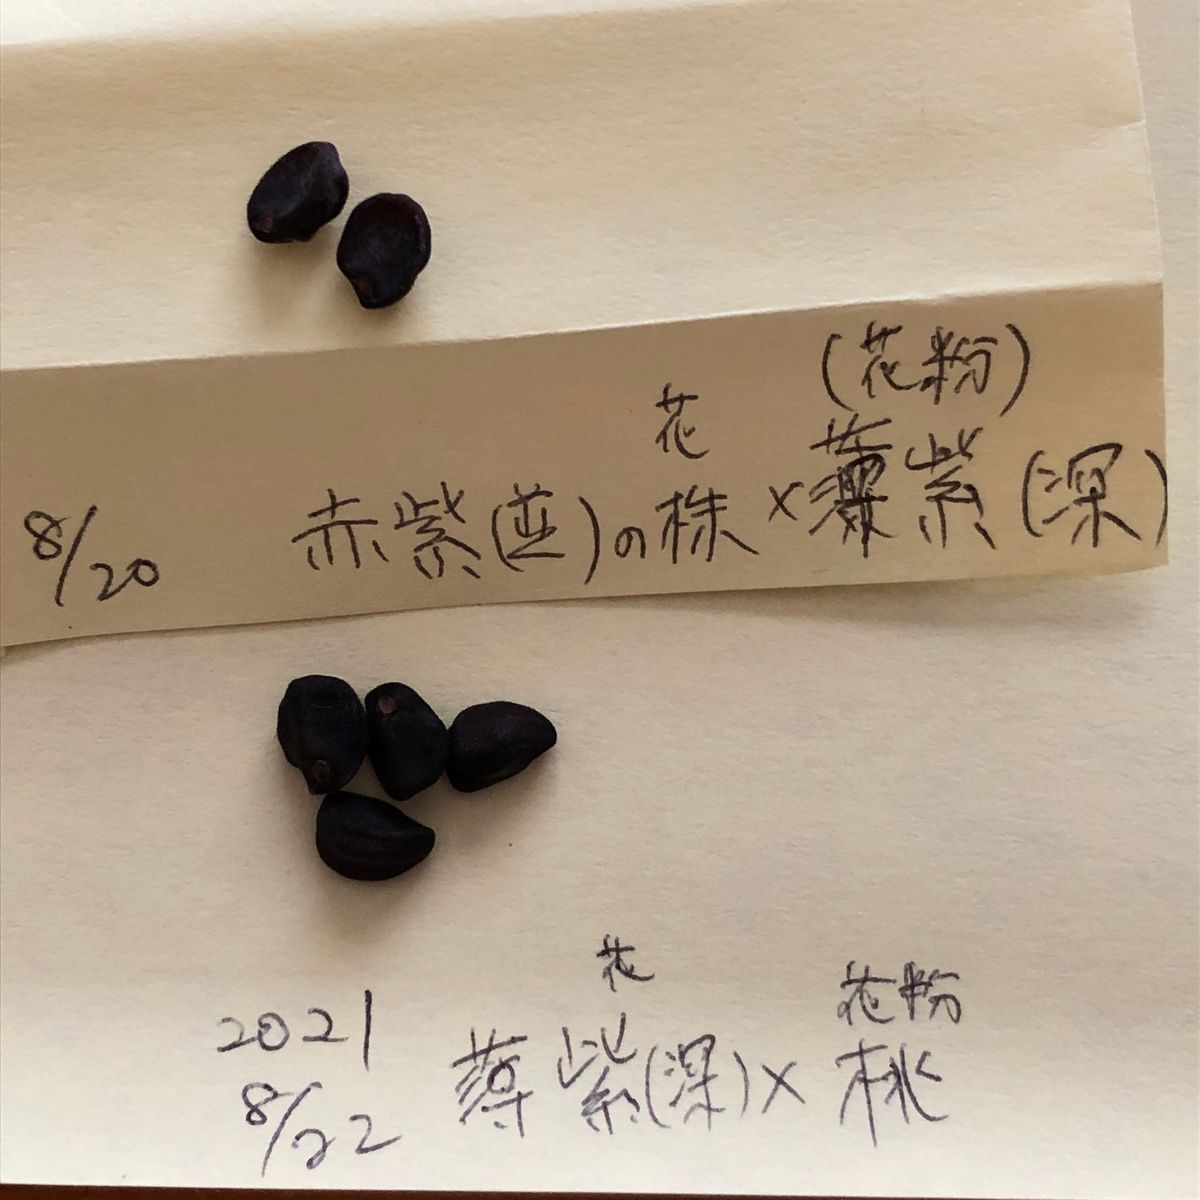 (花粉)
花
8/20 赤紫(並)の株×薄紫(深)
花 花粉
2021 薄紫(深)×桃
8/22